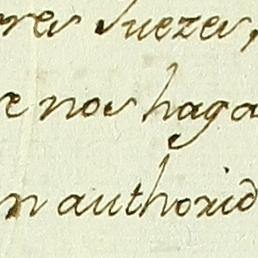 res Juezes,
e nos haga
n authorid